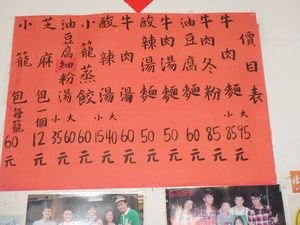 價目表
牛肉麵 小85 大95元
牛肉冬粉 85元
油豆腐麵 60元
牛肉湯麵 50元
酸辣湯麵 50元
牛肉湯 60元
酸辣湯 小15 大40元
小籠蒸餃 60元
油豆腐細粉湯 小35 大60元
芝麻包一個 12元
小籠包每籠 60元